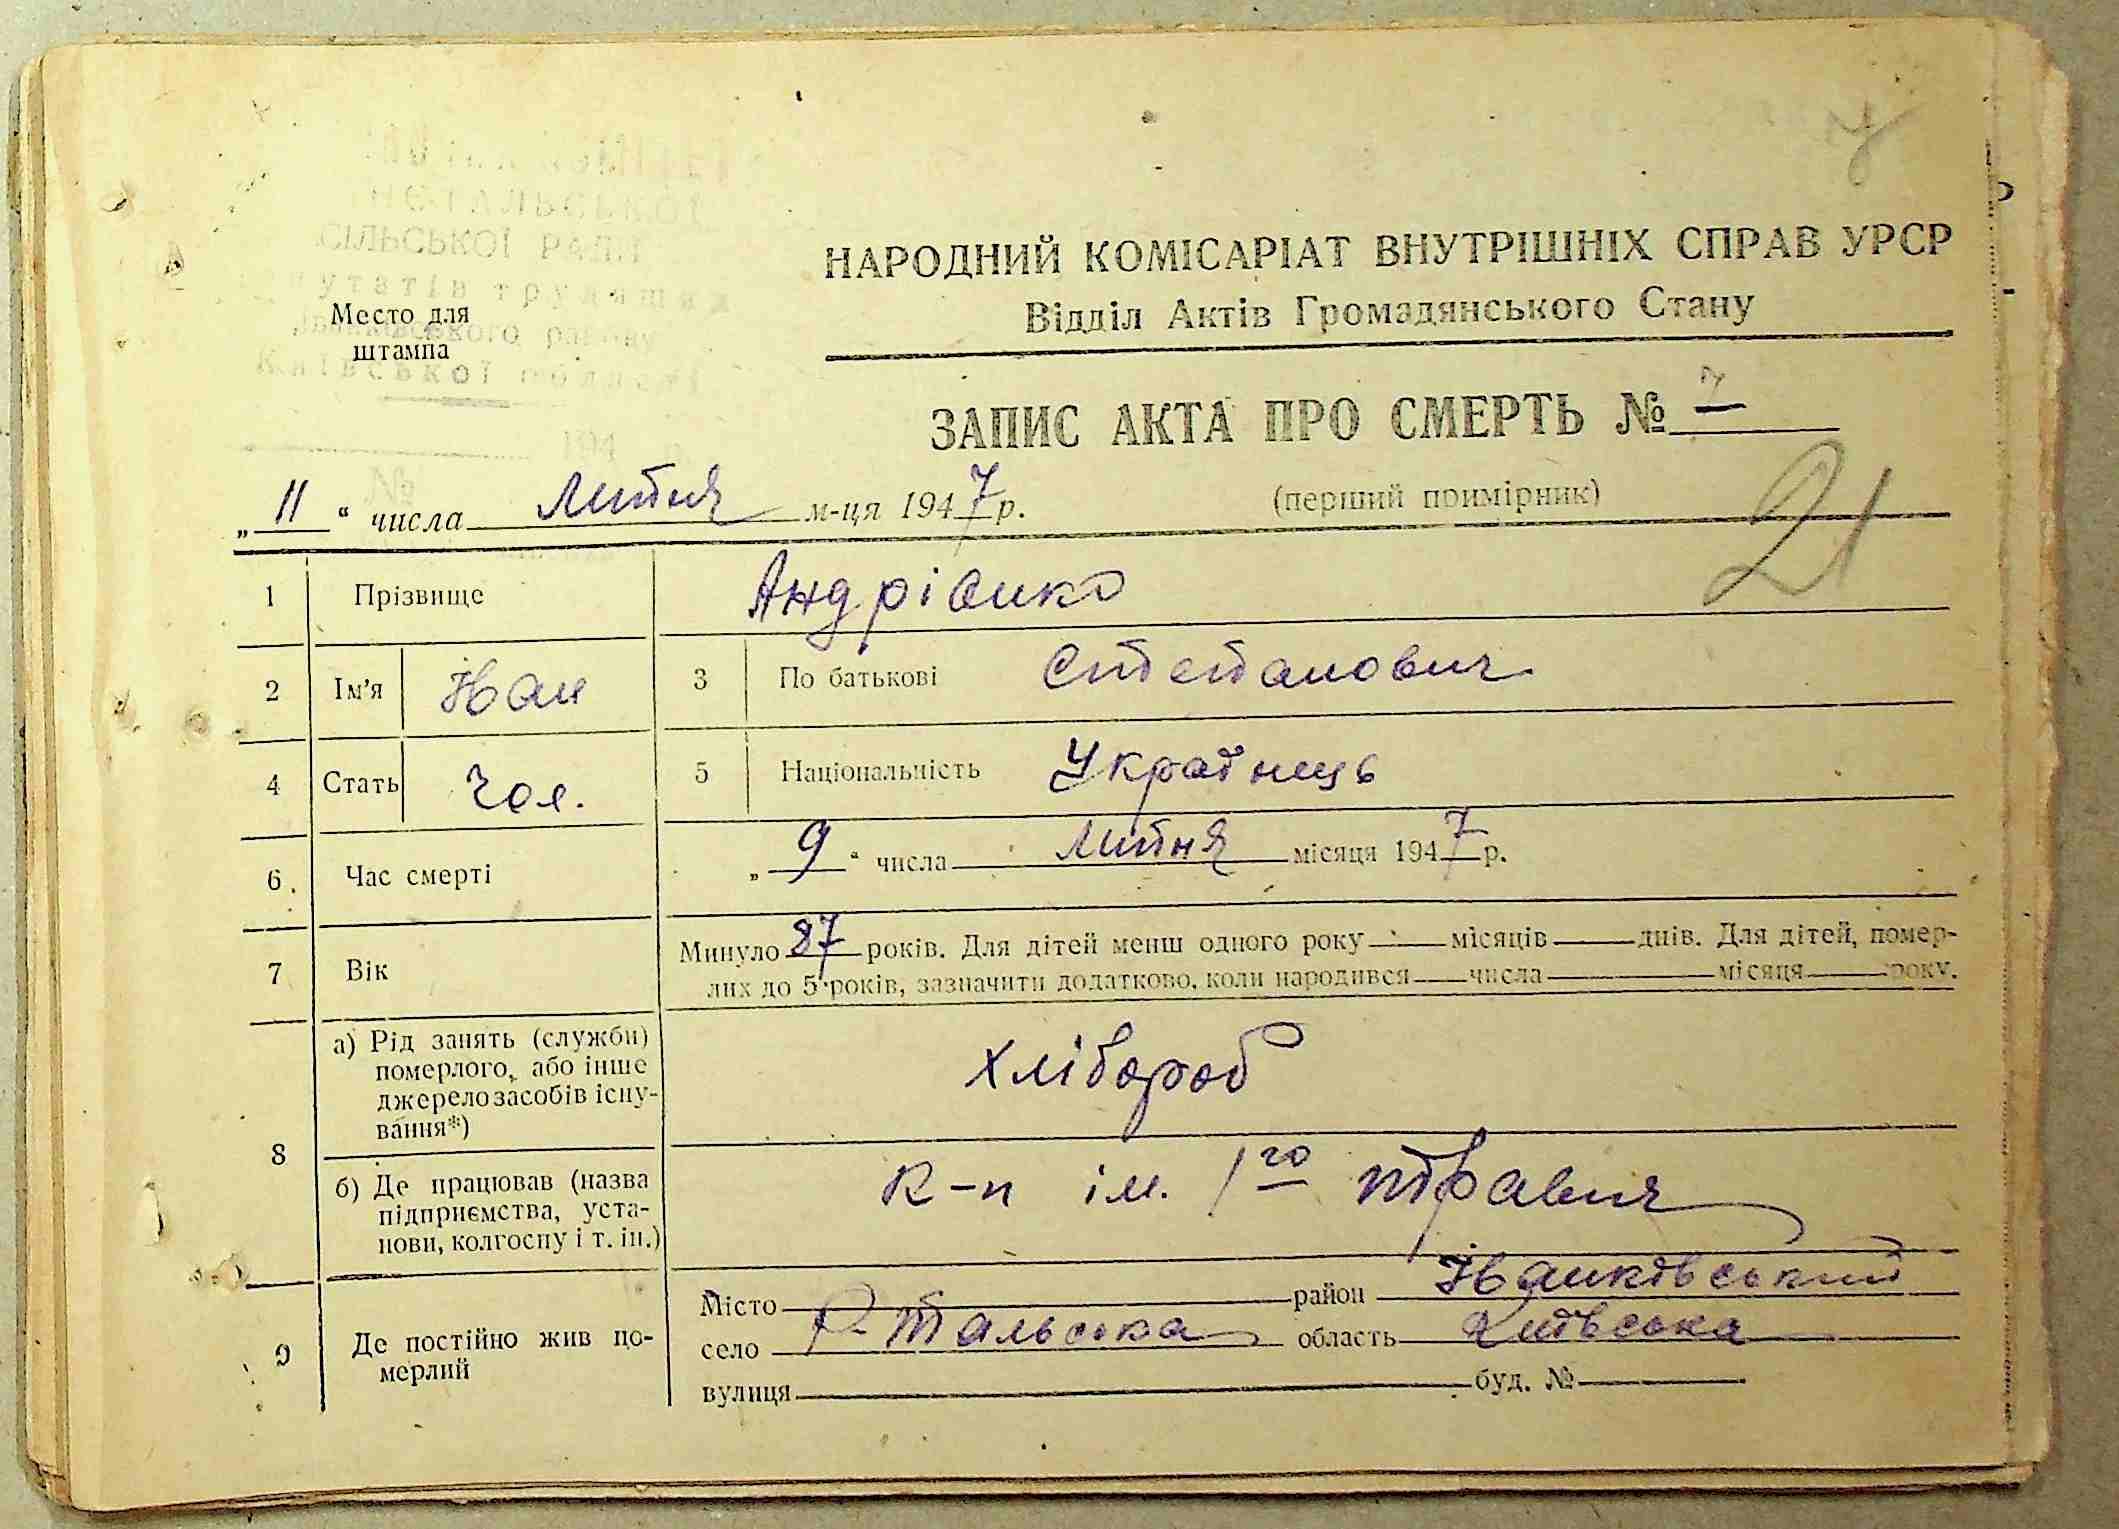 СІЛЬСЬКОЇ РАДИ
Київської області
194
№
Место для
штампа
НАРОДНИЙ КОМІСАРІАТ ВНУТРІШНІХ СПРАВ УРСР
Відділ Актів Громадянського Стану
ЗАПИС АКТА ПРО СМЕРТЬ № 7
„ 11 “ числа Липня м-ця 1947 р. (перший примірник)
21
1 Прізвище Андрієнко
2 Ім'я Іван 3 По батькові Степанович
4 Стать Чол. 5 Національність Українець
6 Час смерті „ 9 “ числа Липня місяця 1947 р.
7 Вік Минуло 87 років. Для дітей менш одного року місяців днів. Для дітей, помер-
лих до 5 років, зазначити додатково, коли народився числа місяця року.
8 а) Рід занять (служби)
померлого, або інше
джерело засобів існу-
вання*) Хлібороб
б) Де працював (назва
підприємства, уста-
нови, колгоспу і т. ін.) к-п ім. 1го травня
9 Де постійно жив по-
мерлий
Місто район Іванківський
село Р. Тальська область Київська
вулиця буд. №